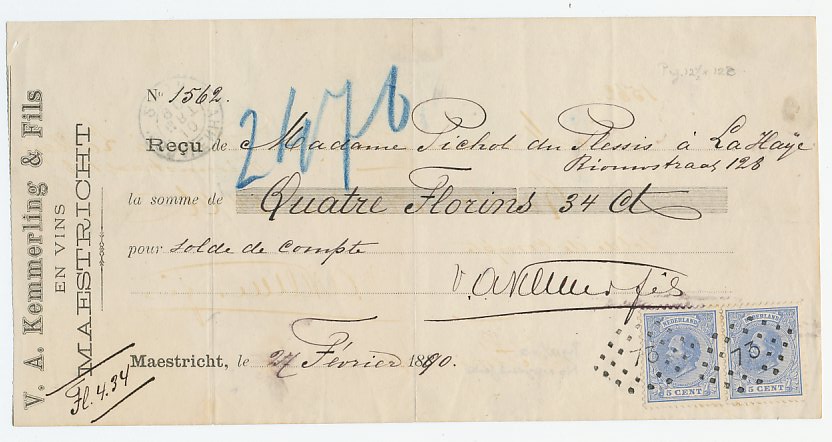 V. A. Kemmerling & Fils
EN VINS
MAESTRICHT
Fl. 4.34
No 1562.
Reçu de Madame Pichot du Plessis à La Haÿe
Riouwstraat 128
la somme de Quatre Florins 34 Ct
pour solde de compte
Maestricht, le 27 Février 1890.
NEDERLAND
5 CENT
73
NEDERLAND
5 CENT
73